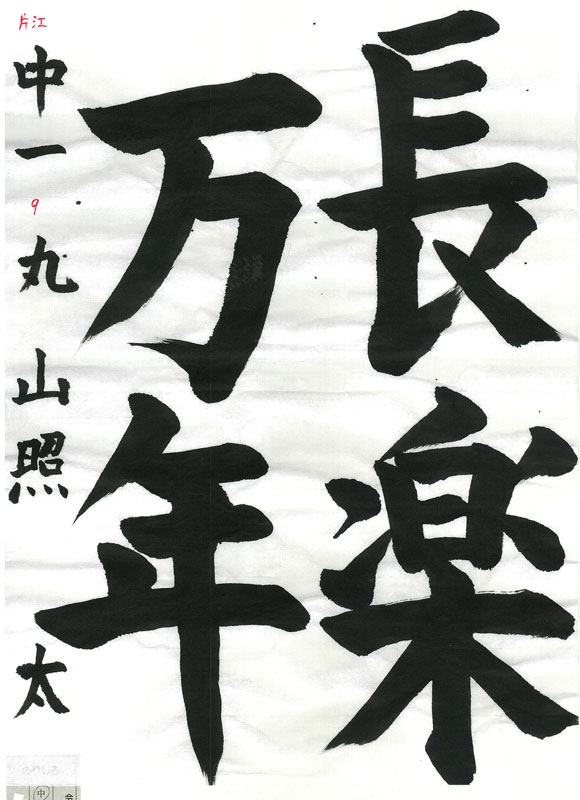 長楽
万年
片江
中一 丸山照太
9
中